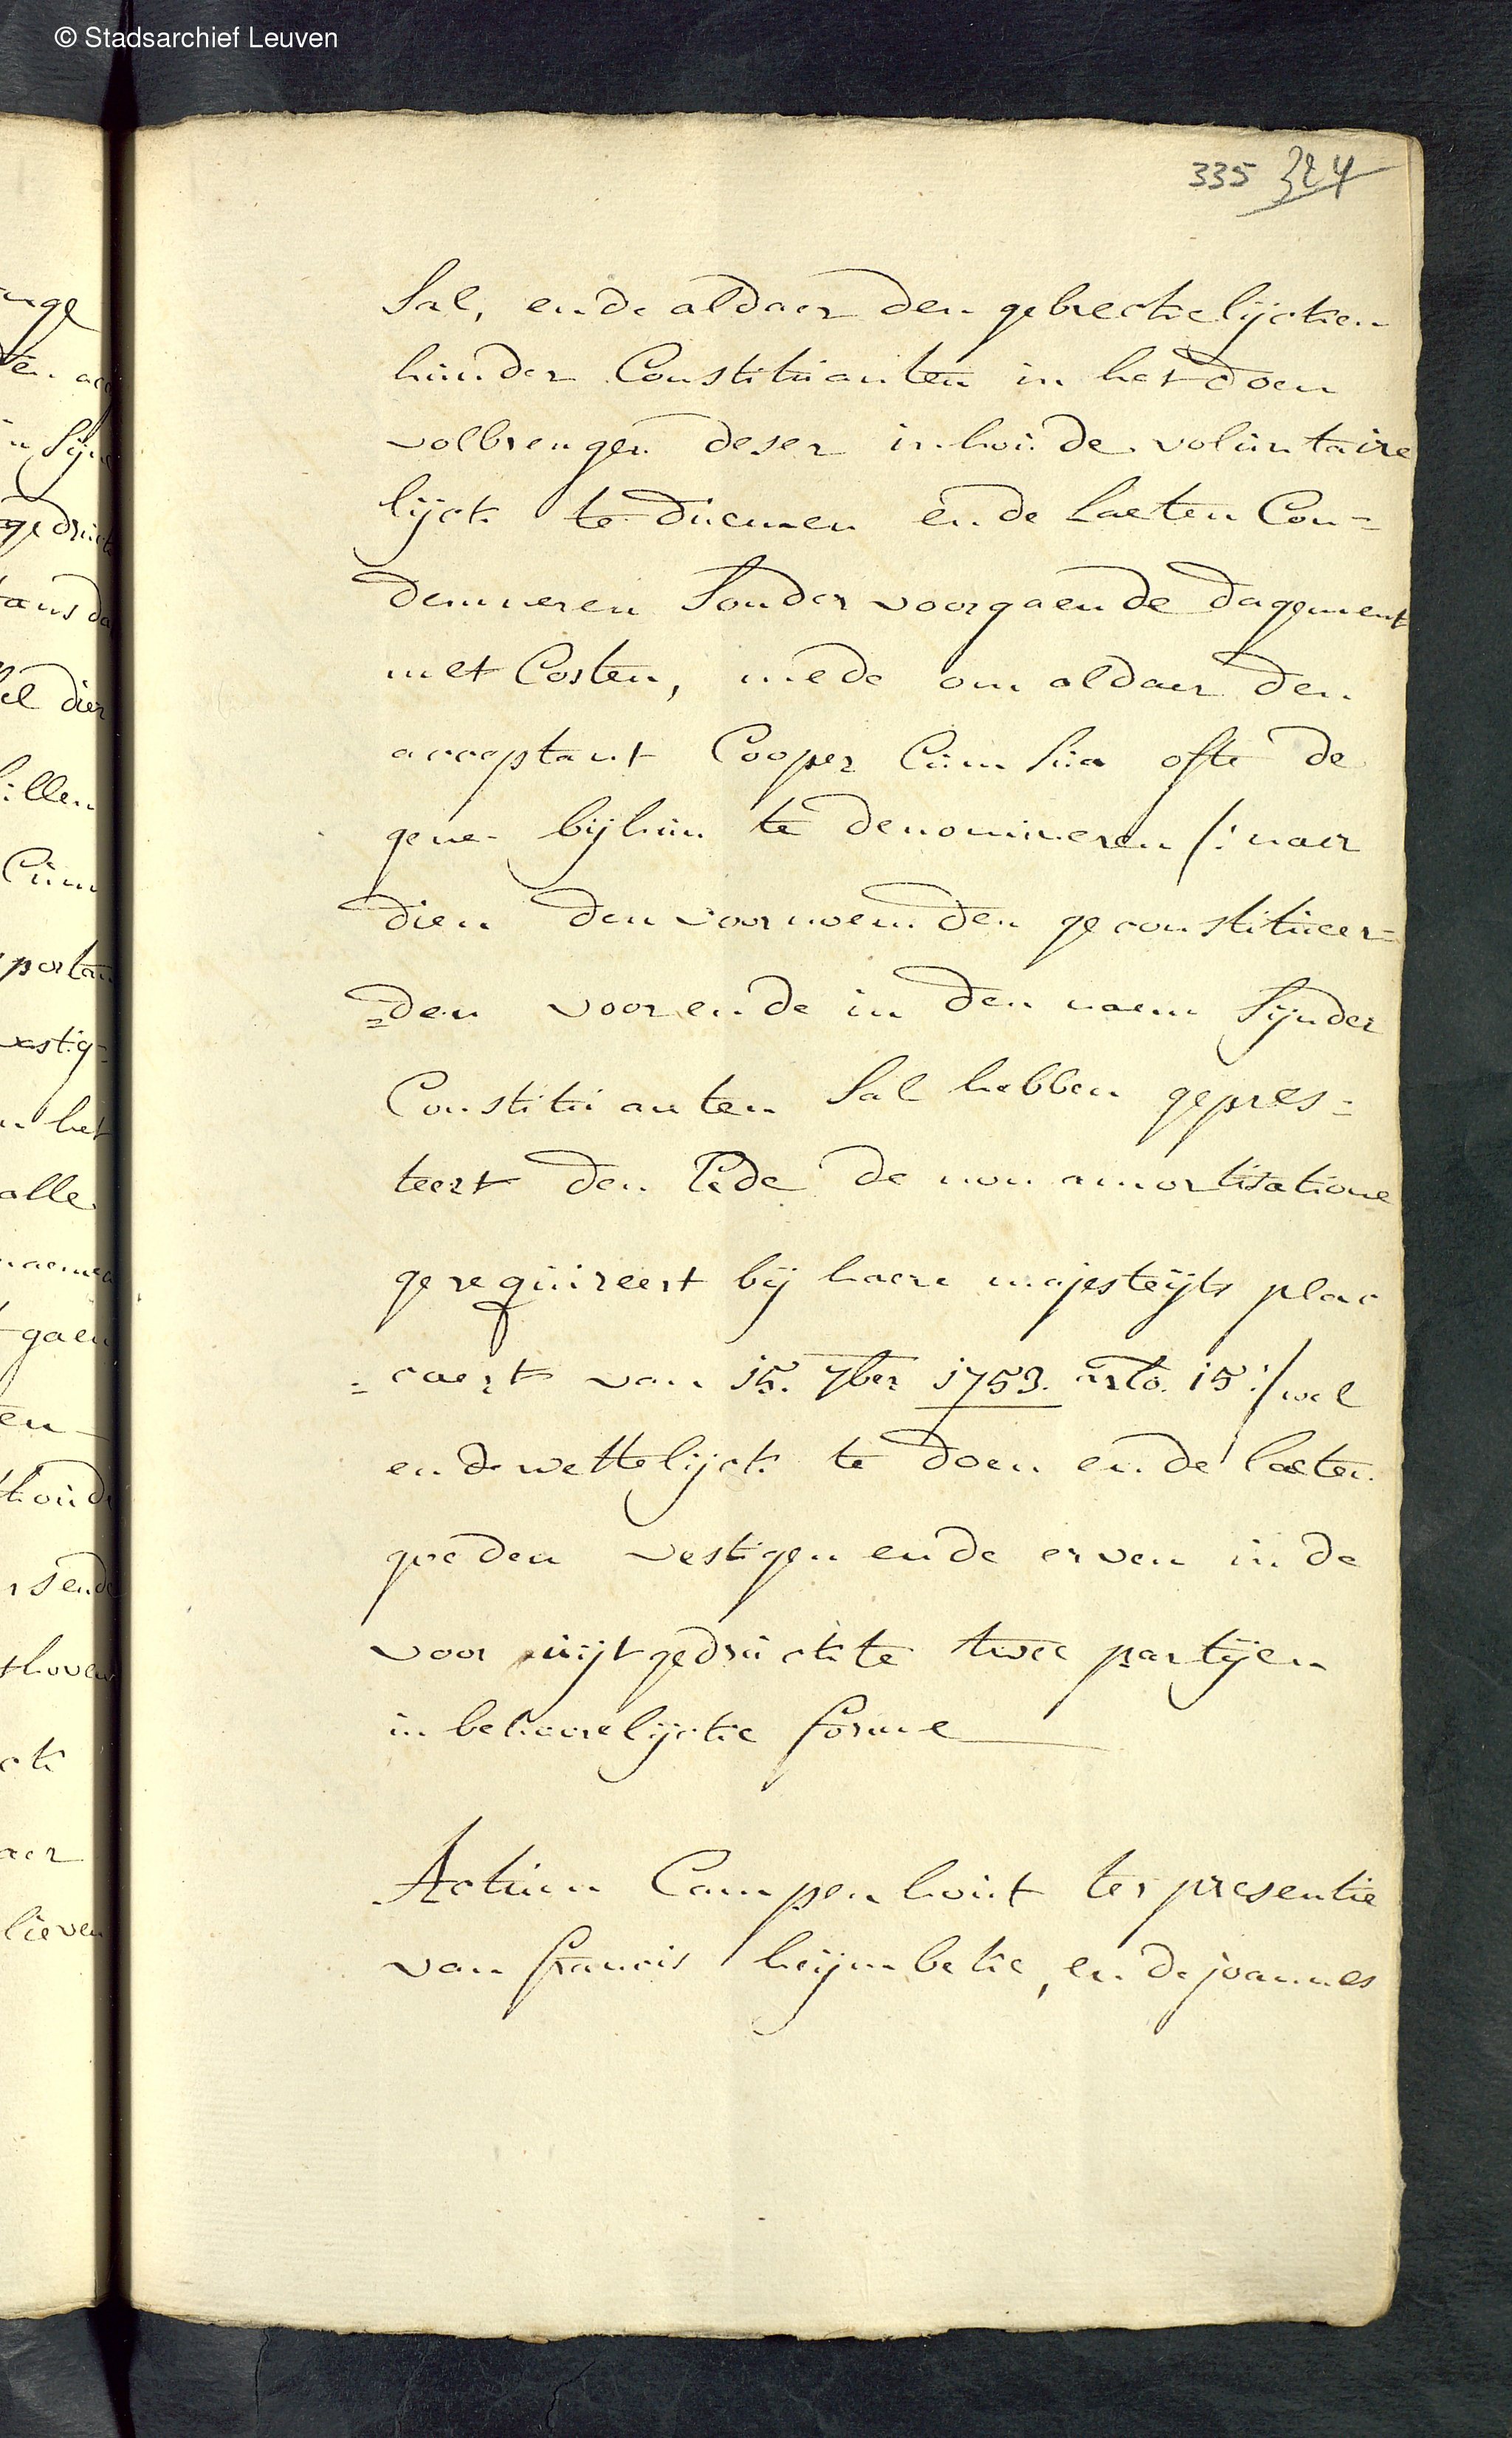 © Stadsarchief Leuven
335 324
Sal, ende aldaer den gebreckelijcken
hunder Constituanten in het doen
volbrengen deser inhoude voluntaire
lijck te doemen ende laeten Con=
demneren Sonder voorgaende dagement
met Costen, mede om aldaer den
acceptant Cooper Cum Sua ofte de
gene bij hun te denomineren /: naer
dien den voornoemden geconstitueer=
=den voor ende in den naem Sijnder
Constituanten Sal hebben gepres=
teert den Eede de non amortisatione
gerequireert bij haere majesteijts plac
=caert van 15. 7ber 1753. arto. 15 :/ wel
ende wettelijck te doen ende laeten
goeden vestigen ende erven in de
voor uijtgedruckte twee partijen
in behoorelijcke forme
Actum Campenhout ter presentie
van francis heijmbeke, ende joannes